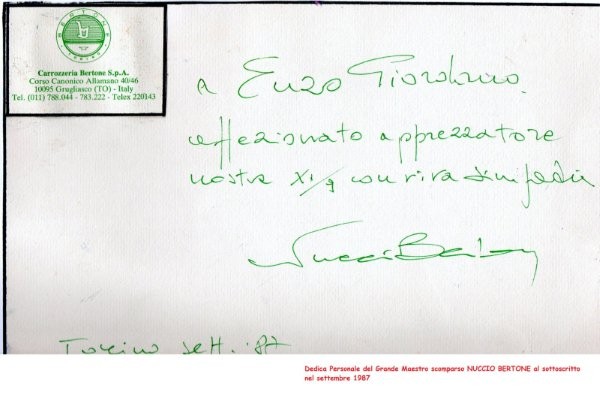 BERTONE
TORINO
Carrozzeria Bertone S.p.A.
Corso Canonico Allamano 40/46
10095 Grugliasco (TO) - Italy
Tel. (011) 788.044 - 783.222 - Telex 220143
A Enzo Giordano.
affezionato apprezzatore
nostra X1/9 con viva simpatia
Nuccio Bertone
Torino sett. '87
Dedica Personale del Grande Maestro scomparso NUCCIO BERTONE al sottoscritto
nel settembre 1987